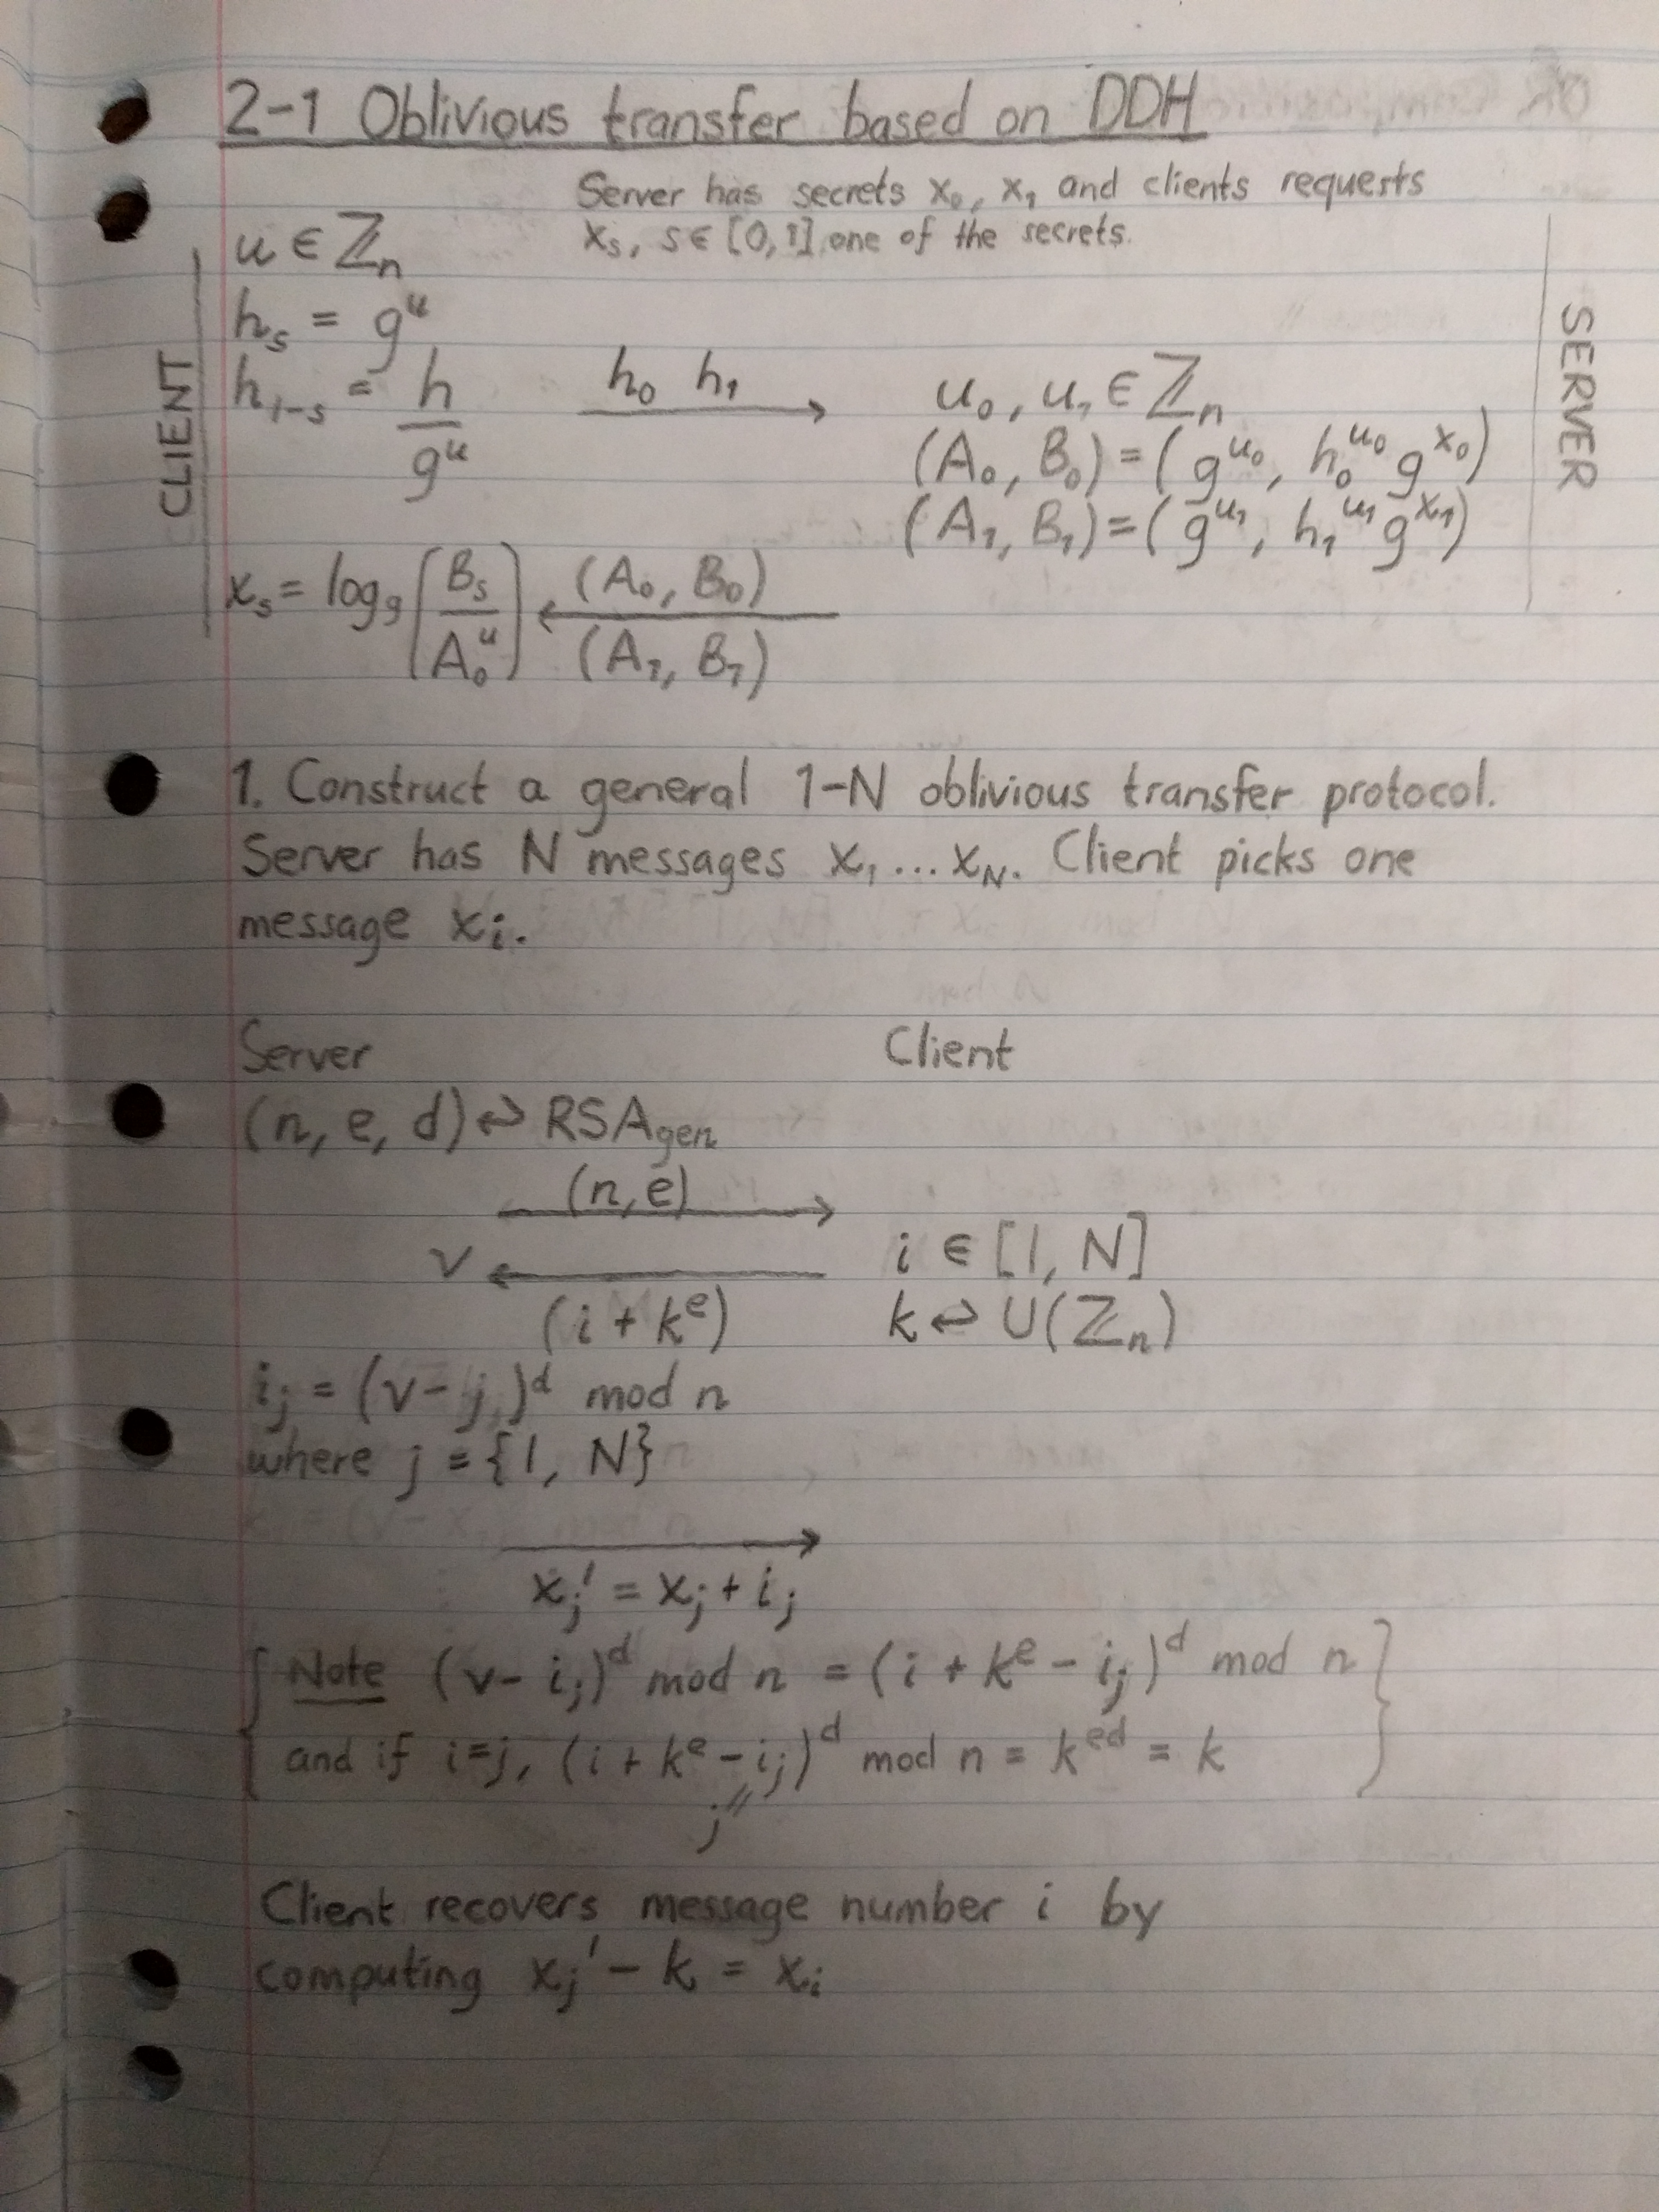 2-1 Oblivious transfer based on DDH
Server has secrets x₀, x₁ and clients requests
xₛ, s ∈ [0, 1] one of the secrets.
CLIENT
u ∈ ℤₙ
hₛ = gᵘ
h₁₋ₛ = h / gᵘ
h₀ h₁ →
SERVER
u₀, u₁ ∈ ℤₙ
(A₀, B₀) = (g^u₀, h₀^u₀ g^x₀)
(A₁, B₁) = (g^u₁, h₁^u₁ g^x₁)
← (A₀, B₀)
(A₁, B₁)
xₛ = log_g [Bₛ / A₀ᵘ]
1. Construct a general 1-N oblivious transfer protocol.
Server has N messages x₁ ... x_N. Client picks one
message xᵢ.
Server Client
(n, e, d) ↩ RSAgen
(n, e) →
i ∈ [1, N]
v ←
(i + kᵉ)
k ↩ U(ℤₙ)
iⱼ = (v - j)ᵈ mod n
where j = {1, N}
→
xⱼ' = xⱼ + iⱼ
{ Note (v - iⱼ)ᵈ mod n = (i + kᵉ - iⱼ)ᵈ mod n
and if i=j, (i + kᵉ - iⱼ)ᵈ mod n = kᵉᵈ = k }
j"
Client recovers message number i by
computing xⱼ' - k = xᵢ